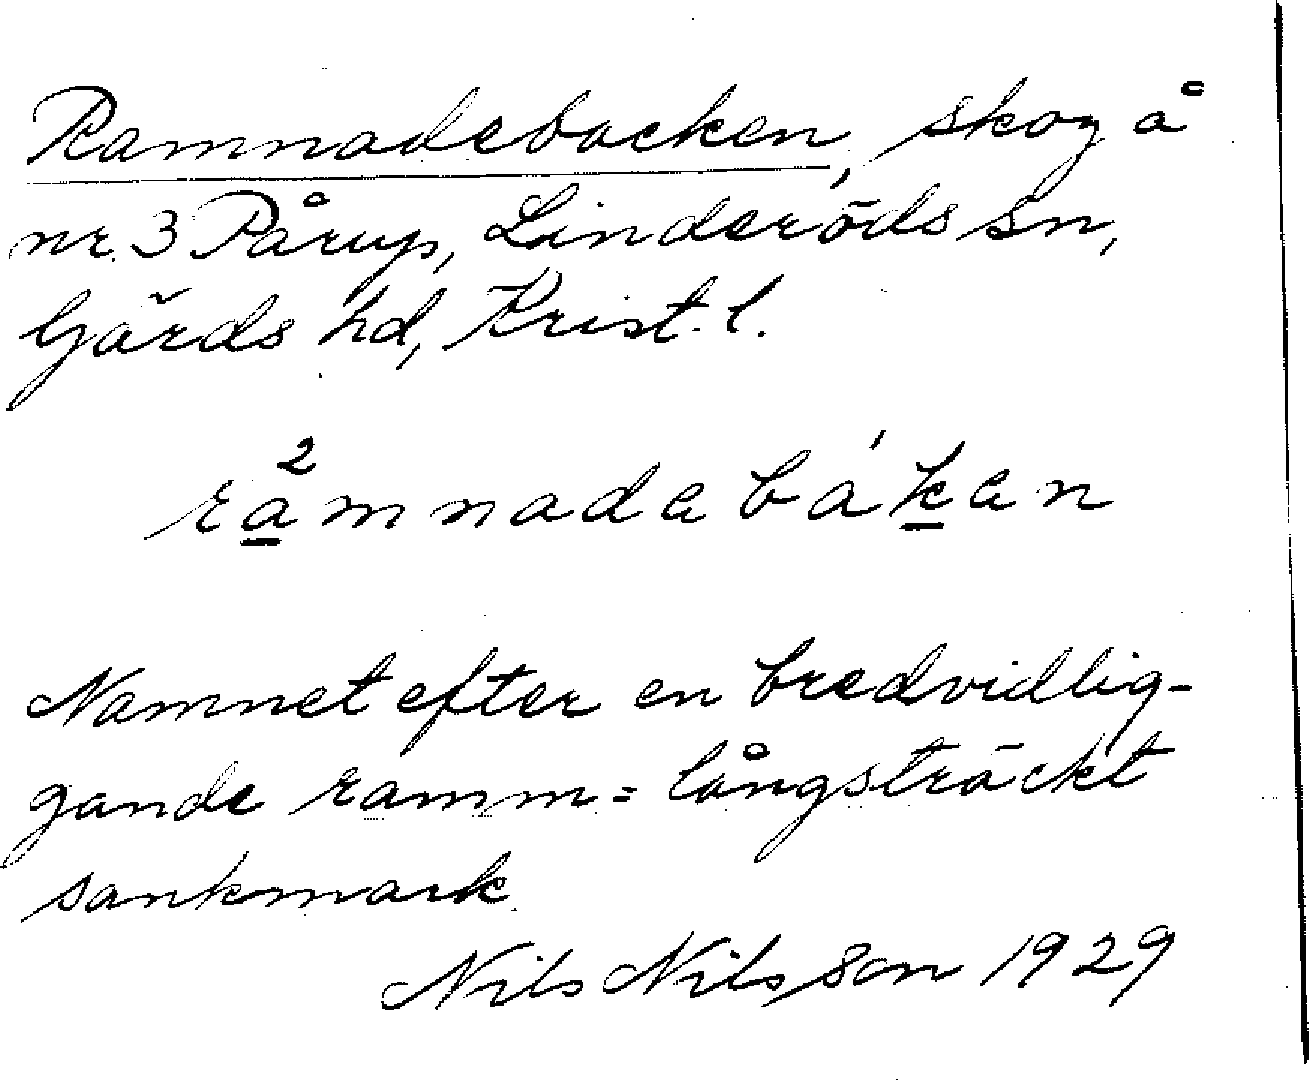 Ramnadebacken, skog å
nr. 3 Pårup, Linderöds sn,
Gärds hd, Krist. l.
ra²mnadabákan
Namnet efter en bredvidlig-
gande ramm = långsträckt
sankmark.
Nils Nilsson 1929